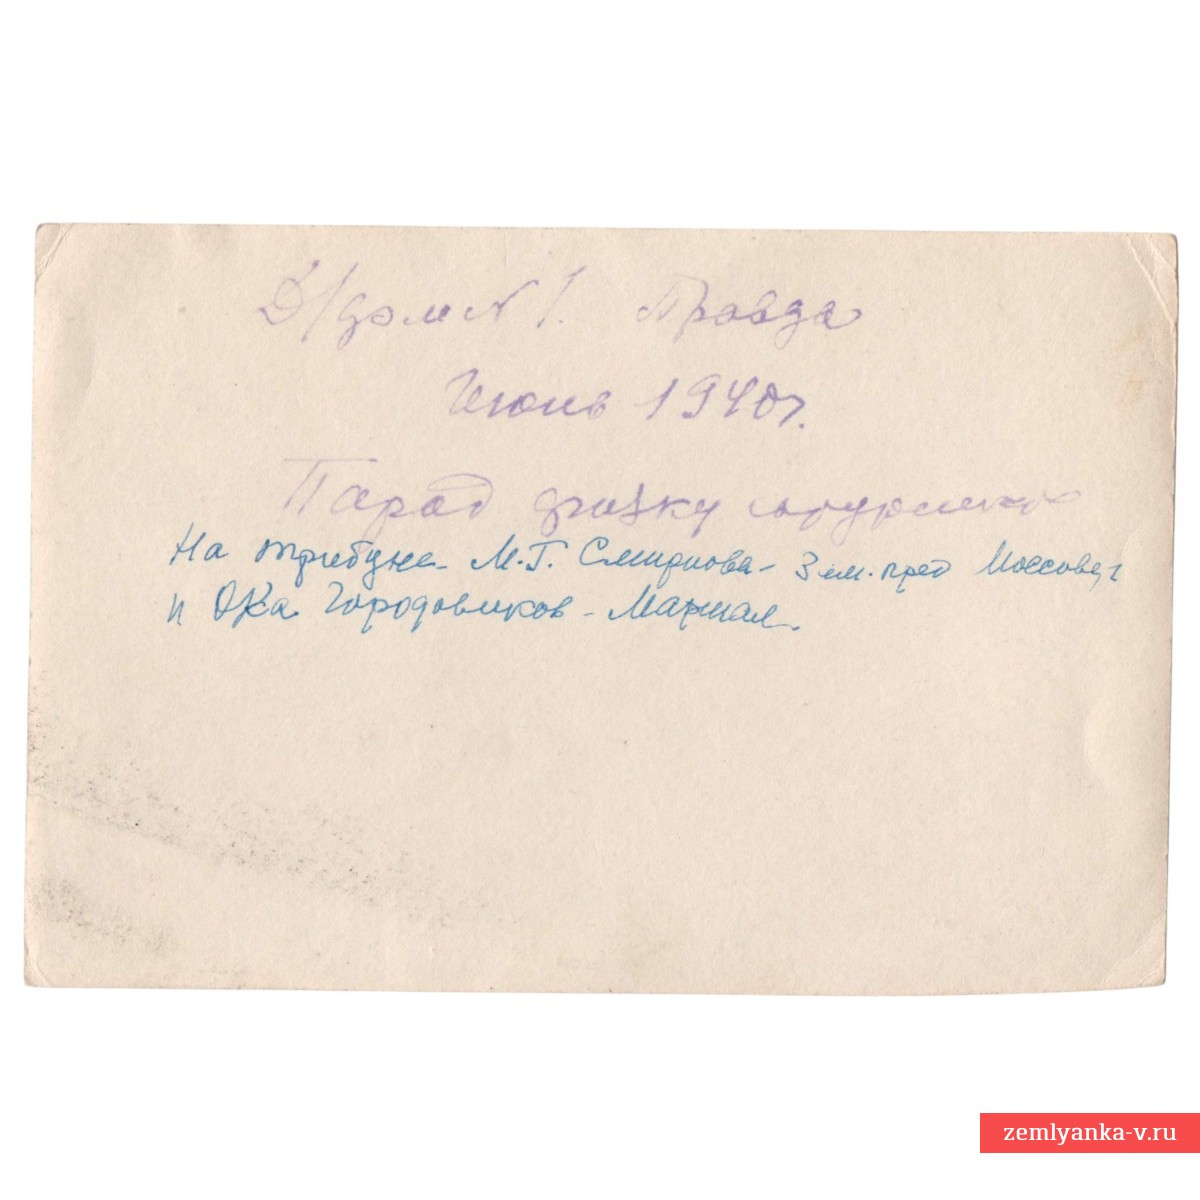 Д/дом N 1. Правда
Июнь 1940 г.
Парад физкультурников
На трибуне М.Г. Смирнова - Зам. пред Моссовет
и Ока Городовиков - Маршал.
zemlyanka-v.ru